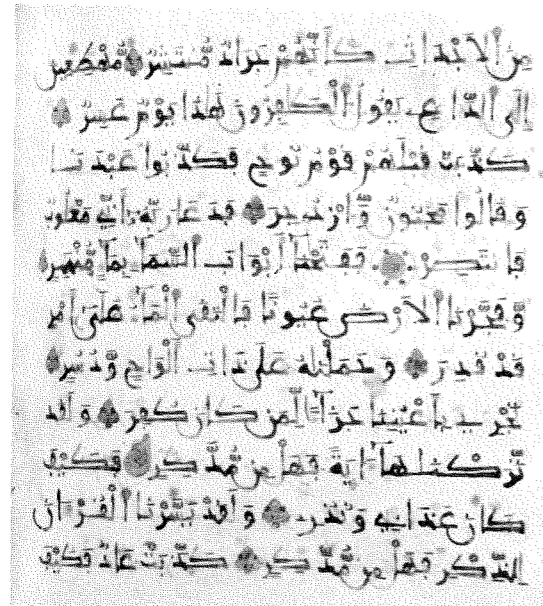 مِنَ الْأَجْدَاثِ كَأَنَّهُمْ جَرَادٌ مُّنتَشِرٌ مُّهْطِعِينَ
إِلَى الدَّاعِ يَقُولُ الْكَٰفِرُونَ هَٰذَا يَوْمٌ عَسِرٌ
كَذَّبَتْ قَبْلَهُمْ قَوْمُ نُوحٍ فَكَذَّبُوا عَبْدَنَا
وَقَالُوا مَجْنُونٌ وَّازْدُجِرَ فَدَعَا رَبَّهُ أَنِّي مَغْلُوبٌ
فَانتَصِرْ فَفَتَحْنَا أَبْوَابَ السَّمَاءِ بِمَاءٍ مُّنْهَمِرٍ
وَّفَجَّرْنَا الْأَرْضَ عُيُونًا فَالْتَقَى الْمَاءُ عَلَىٰ أَمْرٍ
قَدْ قُدِرَ وَحَمَلْنَٰهُ عَلَىٰ ذَاتِ أَلْوَاحٍ وَّدُسُرٍ
تَجْرِي بِأَعْيُنِنَا جَزَاءً لِّمَن كَانَ كُفِرَ وَلَقَد
تَّرَكْنَٰهَا ءَايَةً فَهَلْ مِن مُّدَّكِرٍ فَكَيْفَ
كَانَ عَذَابِي وَنُذُرِ وَلَقَدْ يَسَّرْنَا الْقُرْءَانَ
لِلذِّكْرِ فَهَلْ مِن مُّدَّكِرٍ كَذَّبَتْ عَادٌ فَكَيْفَ